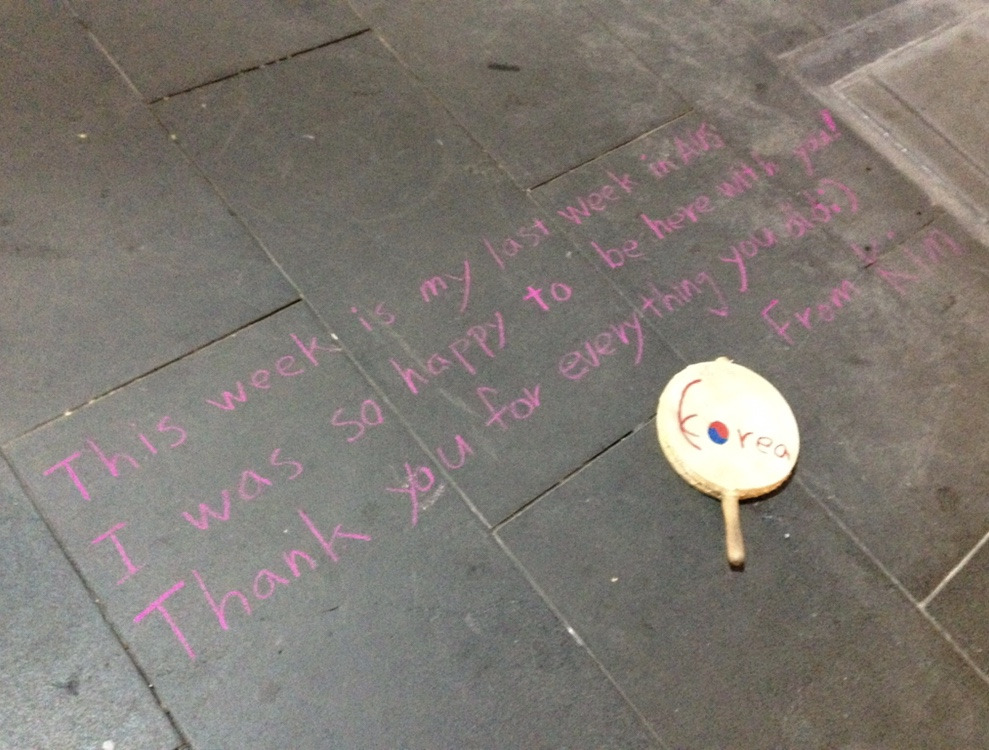 This week is my last week in AUS
I was so happy to be here with you!
Thank you for everything you did :)
From KIM
Korea